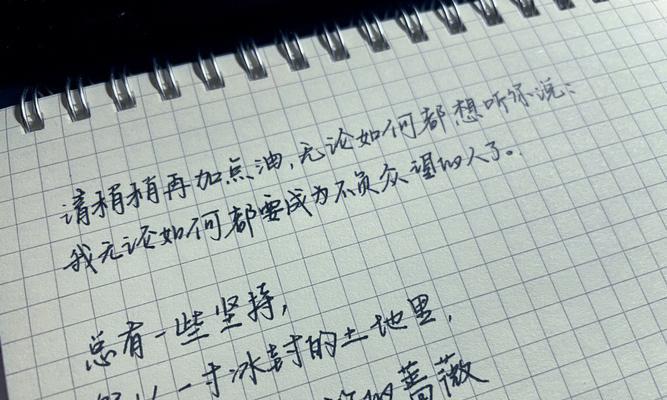 请稍稍再加点油,无论如何都想听你说:
我无论如何都要成为不负众望的人了。
总有一些坚持,
一寸冰封的土地里,
的蔷薇